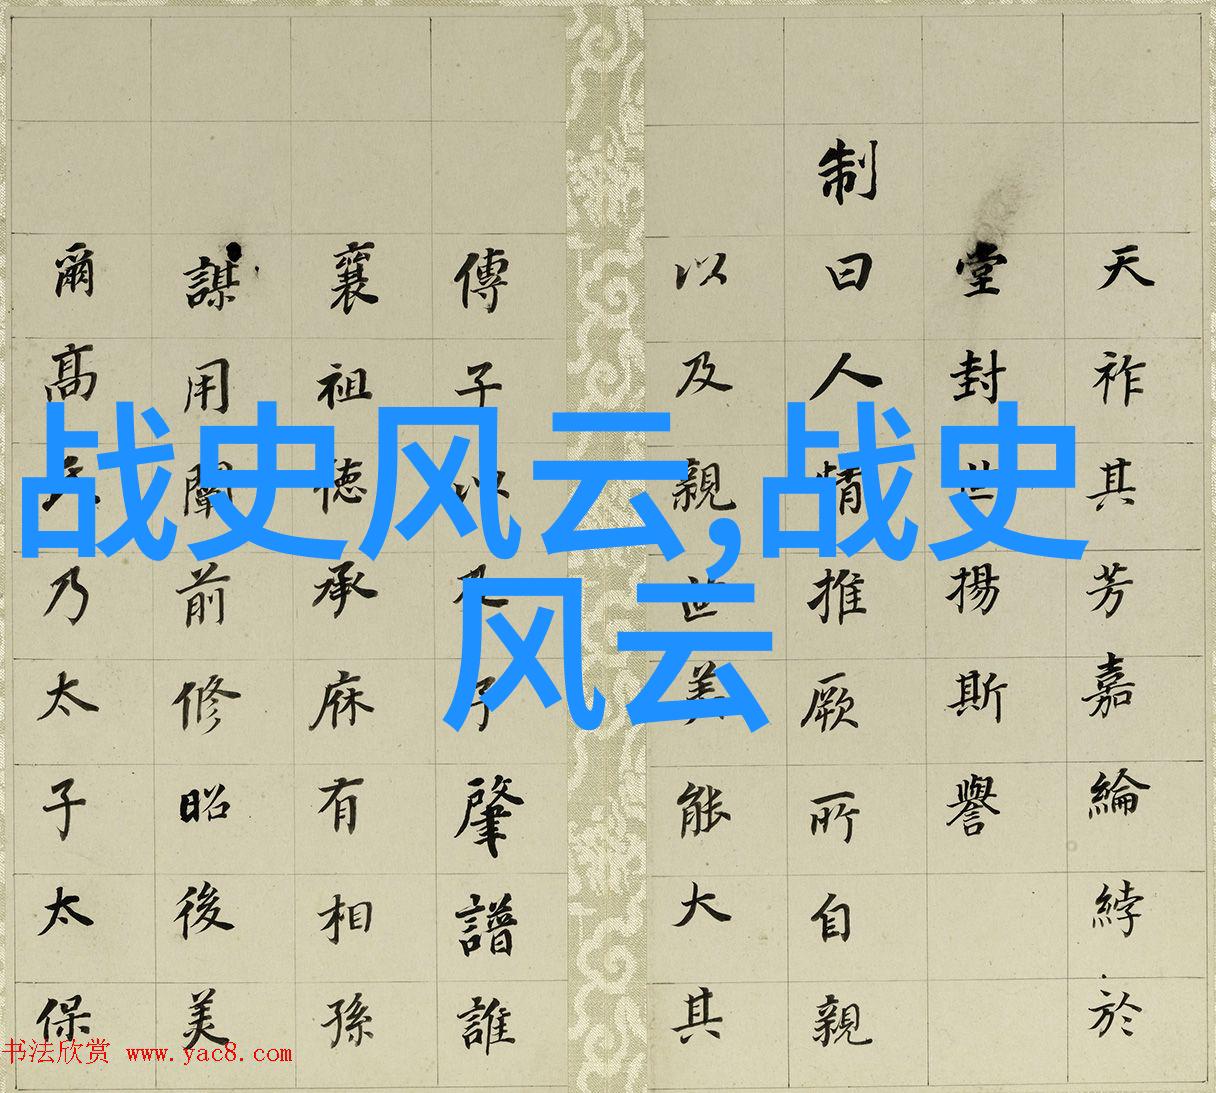 天祚其芳嘉綸綍於
堂封世揚斯譽
制曰人情推厥所自親
以及親世美能大其
傳子以及子肇譜誰
襄祖德承庥有相孫
謀用闡前修昭後美
爾高乃太子太保
战史风云,战史
风云
书法欣赏 www.yac8.com